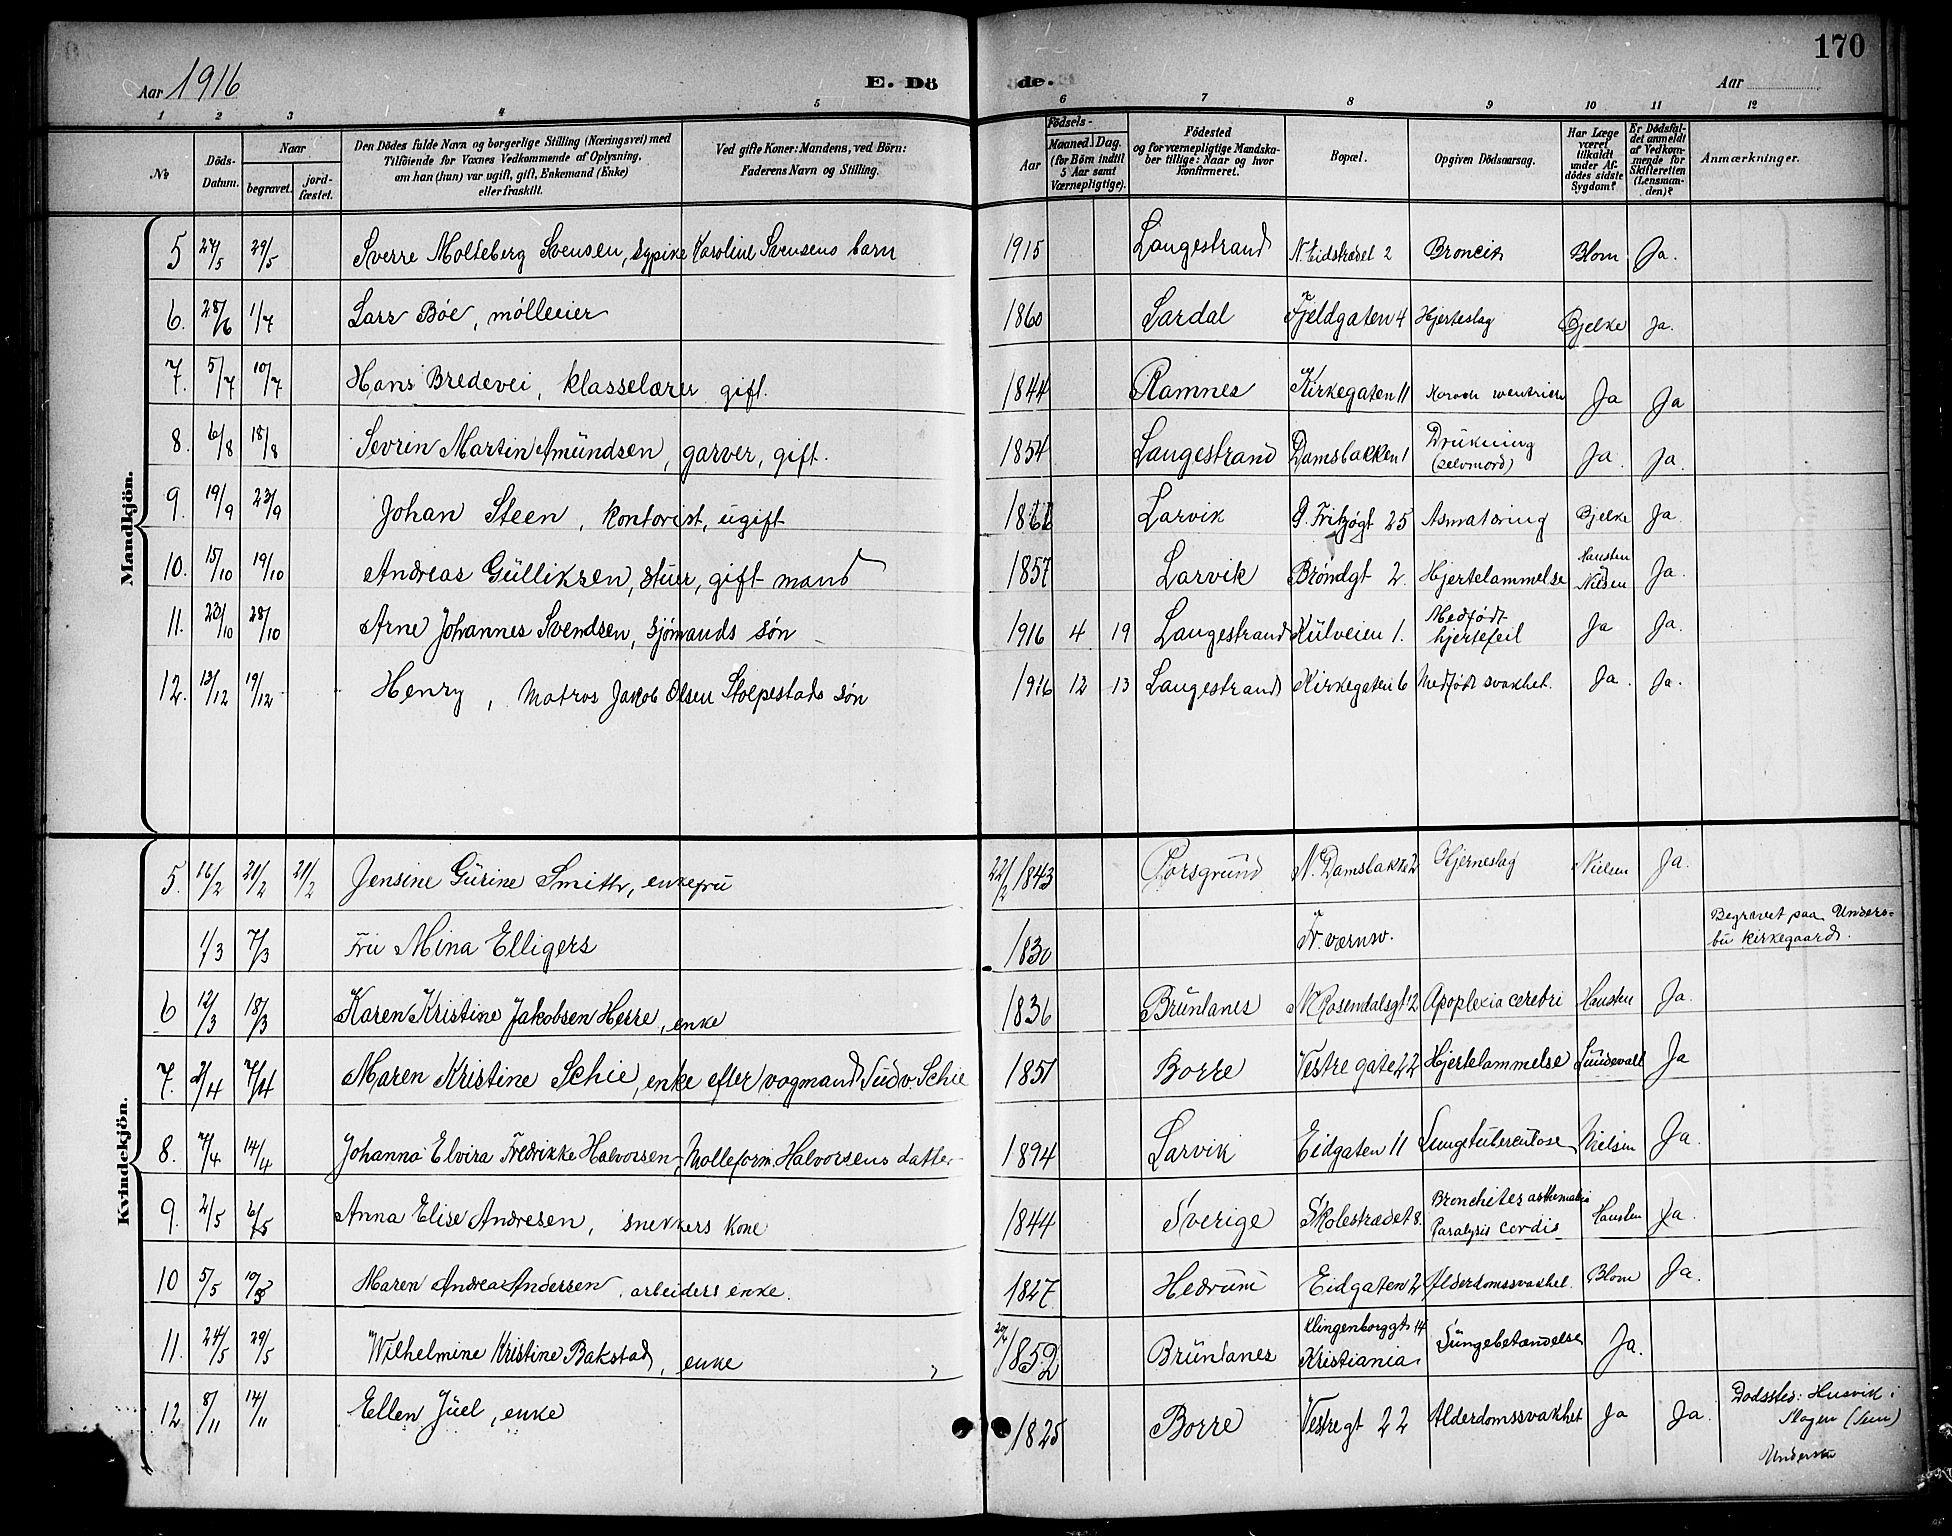 170
Aar 1916 E. Dö de. Aar
1 2 3 4 5 6 7 8 9 10 11 12
No Döds-Datum. Naar begravet. jordfæstet. Den Dödes fulde Navn og borgerlige Stilling (Næringsvei) med Tilföiende for Voxnes Vedkommende af Oplysning, om han (hun) var ugift, gift, Enkemand (Enke) eller fraskilt. Ved gifte Koner: Mandens, ved Börn: Faderens Navn og Stilling. Födsels- Aar Maaned. Dag. (for Börn indtil 5 Aar samt Værnepligtige). Födested og for værnepligtige Mandskaber tillige: Naar og hvor konfirmeret. Bopæl. Opgiven Dödsaarsag. Har Læge været tilkaldt under Afdödes sidste Sygdom? Er Dödsfaldet anmeldt af Vedkommende for Skifteretten (Lensmanden)? Anmærkninger.
Mandkjön.
5 27/5 29/5 Sverre Molteberg Svensen, sypike Karoline Svensens barn 1915 Langestrand N. Eidstrædet 2 Broncit Blom Ja.
6. 28/6 1/7 Lars Bóe, mólleeier 1860 Sardal Fjeldgaten 4 Hjerteslag Bjelke Ja.
7. 5/7 10/7 Hans Bredevei, klasselærer gift. 1844 Ramnes Kirkegaten 11 Ja Ja
8. 6/8 18/8 Sevrin Martin Amündsen, garver, gift. 1854 Langestrand Damsbakken 1 Drukning (selvmord) Ja. Ja.
9. 19/9 23/9 Johan Steen, kontorist, ugift Larvik 25 Bjelke Ja.
10. 15/10 19/10 Andreas Gülliksen, stuer, gift mand 1857 Larvik Bróndgt 2. Hjertelammelse Hansten Nilsen Ja.
11. 23/10 28/10 Arne Johannes Svendsen, sjómands són 1916 4 19 Langestrand Külveien 1. Medfódt hjertefeil Ja Ja.
12. 13/12 19/12 Henry, matros Jakob Olsen Stolpestads són 1916 12 13 Langestrand Kirkegaten 6 Medfódt svakhet. Ja. Ja.
Kvindekjön.
5. 16/2 21/2 21/2 Jensine Gürine Smith, enkefrü 22/2 1843 Porsgründ N. Damsbakke 2 Hjerneslag Nielsen Ja.
1/3 7/3 Frü Mina Elligers 1830 Fr.værnsv. Begravet paa Undersbü kirkegaard.
6 12/3 18/3 Karen Kristine Jakobsen Herre, enke 1836 Brünlanes N Rosendalsgt 12 Apoplexia cerebri Hansten Ja.
7. 2/4 7/4 Maren Kristine Schie, enke efter vogmand Lüdv. Schie 1851 Borre Vestre gate 22 Hjertelammelse Sündevall Ja
8. 7/4 14/4 Johanna Elvira Fredrikke Halvorsen, Molleform. Halvorsens datter 1894 Larvik Eidgaten 11 Lungetüberculose Nielsen Ja.
9. 2/5 6/5 Anna Elise Andresen, snekkers kone 1844 Sverige Skolestrædet 8. Bronchites asthmatica Paralysis cordis Hansten Ja.
10 5/5 10/5 Maren Andrea Andersen, arbeiders enke. 1827. Hedrüm Eidgaten 2 Alderdomssvakhet. Blom Ja.
11. 24/5 29/5 Wilhelmine Kristine Bakstad, enke 1852 Brünlanes Klingenborggt 14 Kristiania. Lüngebetændelse Ja.
12 8/11 14/11 Ellen Jüel, enke 1825 Borre Vestregt 22 Alderdomssvakhet Ja Ja. Dødssted: Husvik i Slagen (Sem)